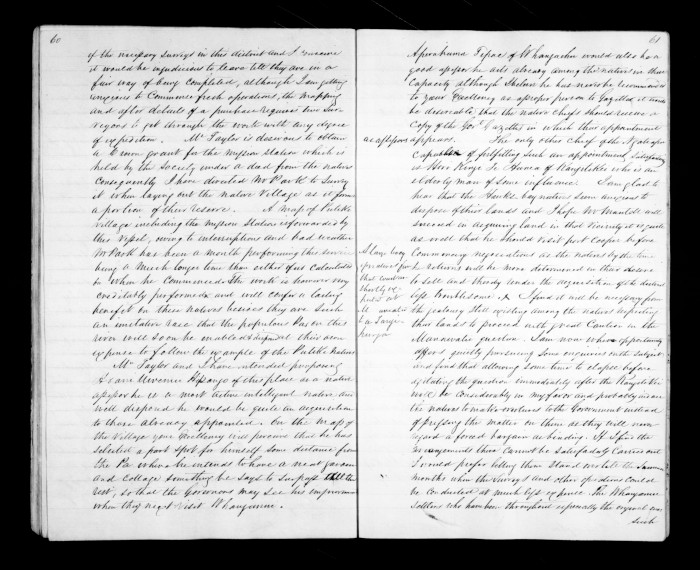 60
of the necessary surveys in this district and I conceive
it would be injudicious to leave till they are in a
fair way of being completed, although I am getting
anxious to commence fresh operations, the mapping
and after details of a purchase requires two Sur-
veyors to get through the work with any degree
of expedition. Mr Taylor is desirous to obtain
a Crown grant for the Mission Station which is
held by the Society under a deed from the natives
consequently I have directed Mr Park to Survey
it when laying out the native Village as it forms
a portion of their reserve. A map of Putiki
Village including the Mission Station is forwarded by
this vessel, owing to interruptions and bad weather
Mr Park has been a month performing this service
being a much longer time than either of us calculated
on when he commenced the work is however very
creditably performed and will confer a lasting
benefit on these natives besides they are such
an imitative race that the populous Pas on this
river will soon be enabled & disposed at their own
expense to follow the example of the Putiki Natives
Mr Taylor and I have intended proposing
to have Mawae Hipango of this place as a native
assessor he is a most active intelligent native and
well disposed he would be quite an acquisition
to those already appointed. On the map of
the Village your Excellency will perceive that he has
selected a spot for himself some distance from
the Pa where he intends to have a neat garden
and Cottage something he says to surpass all the
rest, so that the Governor may see his improvement
when they next visit Whanganui.
61
Apirahama Tipae of Whangaehu would also be a
good assessor he acts already among the natives in that
capacity although I believe he has never been recommended
to your Excellency as a proper person to Gazette, it would
be desirable that the native Chiefs should receive a
Copy of the Govt Gazettes in which their appointment
as assessors appears. The only other Chief of the Ngatiapa
capable of fulfilling such an appointment satisfactorily
is Kingi Te Ahuaa of Rangitikei who is an
elderly man of some influence. I am glad to
hear that the Hawkes bay natives seem anxious to
dispose of their Lands and I hope Mr Mantell will
succeed in acquiring land in that vicinity it is quite
as well that he should visit port Cooper before
Commencing negociations as the natives by the time
he returns will be more determined in their desire
to sell and thereby render the acquisition of the district
less troublesome. I find it will be necessary from
the jealousy still existing among the natives respecting
their lands to proceed with great Caution in the
Manawatu question. I am now when opportunity
offers quietly pursuing some enquiries on the subject
and find that allowing some time to elapse before
agitating the question immediately after the Rangitikei
will be considerably in my favor and probably induce
the natives to make overtures to the Government instead
of pressing the matter on them as they will never
regard a forced bargain as binding. If I find the
arrangements there cannot be satisfactorily carried out
I would prefer letting them stand over till the Summer
months when the Surveys and other operations could
be conducted at much less expense. The Whanganui
Settlers who have been throughout
such